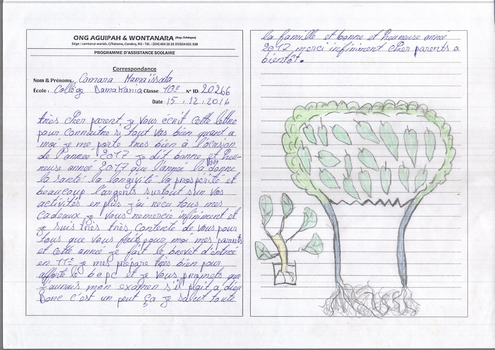 ONG AGUIPAH & WONTANARA
PROGRAMME D'ASSISTANCE SCOLAIRE
Correspondance
Nom & Prénoms: Camara
École: Collège Damakania Classe 10e N° ID: 20266
Date: 15.12.2016
très cher parent, je vous écrit cette lettre
pour connaitre si tout vas bien quant a
moi je me porte très bien à l'occasion
de l'année 2017 je dit bonne et heu-
reuse année 2017 que l'année la donne
la santé la longivité la prosperité et
beaucoup l'argents surtout sur vos
activités en plus j'ai réçu tous mes
cadeaux je vous remercie infiniment et
je suis très très contente de vous pour
tous que vous faite pour moi mes parents
et cette année je fait le brevet d'entrée
en je me prépare très bien pour
le bepc et je vous promets que
j'aurais mon examen s'il plait à dieu
Donc c'est un peut ça je salut toute
la famille et bonne et heureuse année
2017 merci infiniment cher parents a
bientôt.